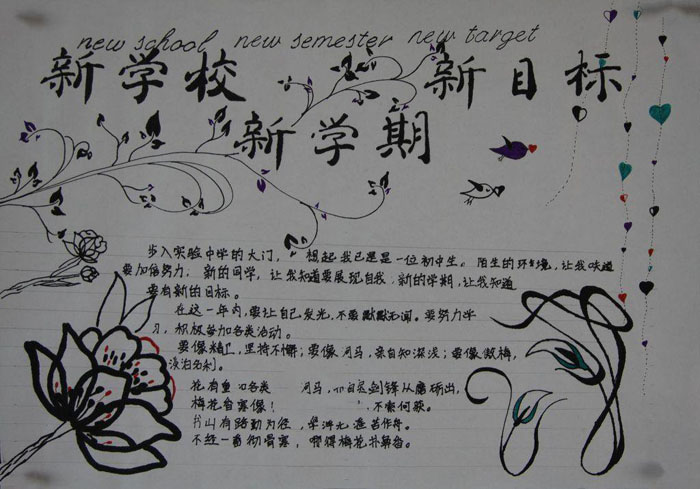 new school new semester new target
新学校 新目标
新学期
步入实验中学的大门, 想起我已是是一位初中生。陌生的环境,让我知道
要加倍努力, 新的同学,让我知道要展现自我,新的学期,让我知道
要有新的目标。
在这一年内,要让自己发光,不要默默无闻。要努力学
习,积极参加各类活动。
要像精卫,坚持不懈;要像河马,亲自知深浅;要像傲梅,
淡泊名利。
花有重 各类 河马, 剑锋从磨砺出,
梅花自寒像! 不索何获。
书山有路勤为径,学海无涯苦作舟。
不经一番彻骨寒,哪得梅花扑鼻香。